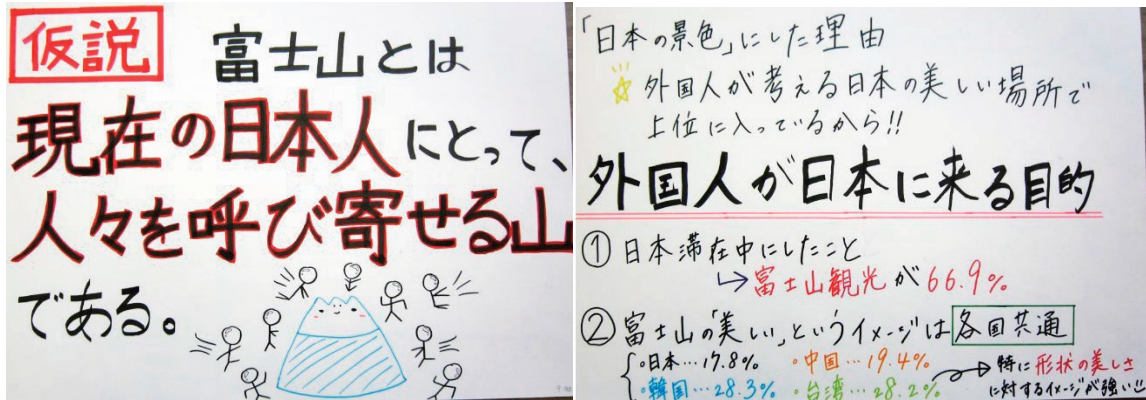 仮説 富士山とは
現在の日本人にとって、
人々を呼び寄せる山
である。
「日本の景色」にした理由
外国人が考える日本の美しい場所で
上位に入っているから!!
外国人が日本に来る目的
① 日本滞在中にしたこと
↳ 富士山観光が66.9%
② 富士山の「美しい」というイメージは 各国共通
・日本…17.8% ・中国…19.4% → 特に形状の美しさ
・韓国…28.3% ・台湾…28.2% に対するイメージが強い!!